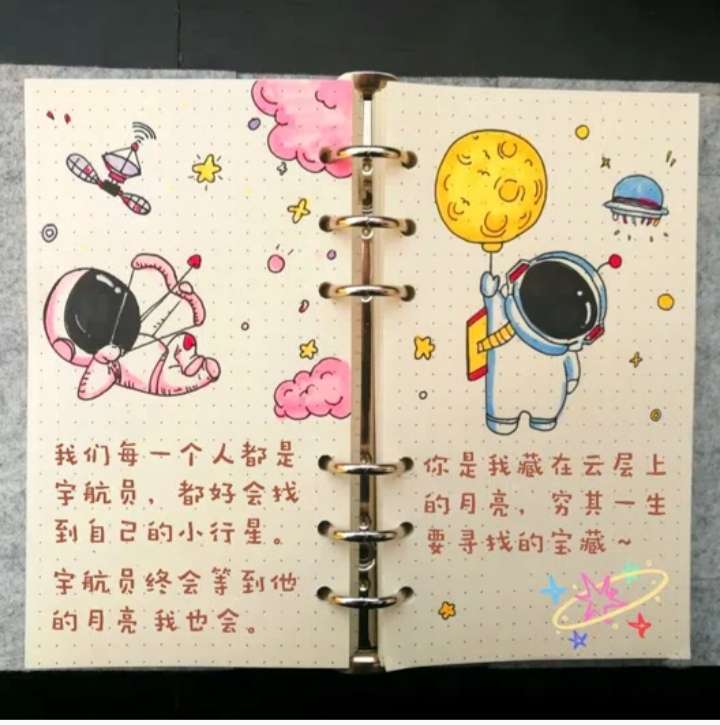 我们每一个人都是
宇航员，都好会找
到自己的小行星。
宇航员终会等到他
的月亮 我也会。
你是我藏在云层上
的月亮，穷其一生
要寻找的宝藏~